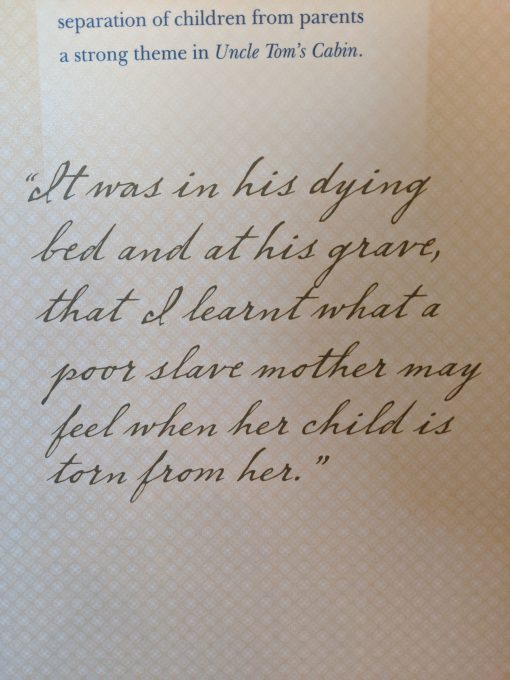 separation of children from parents
a strong theme in Uncle Tom's Cabin.
"It was in his dying
bed and at his grave,
that I learnt what a
poor slave mother may
feel when her child is
torn from her."